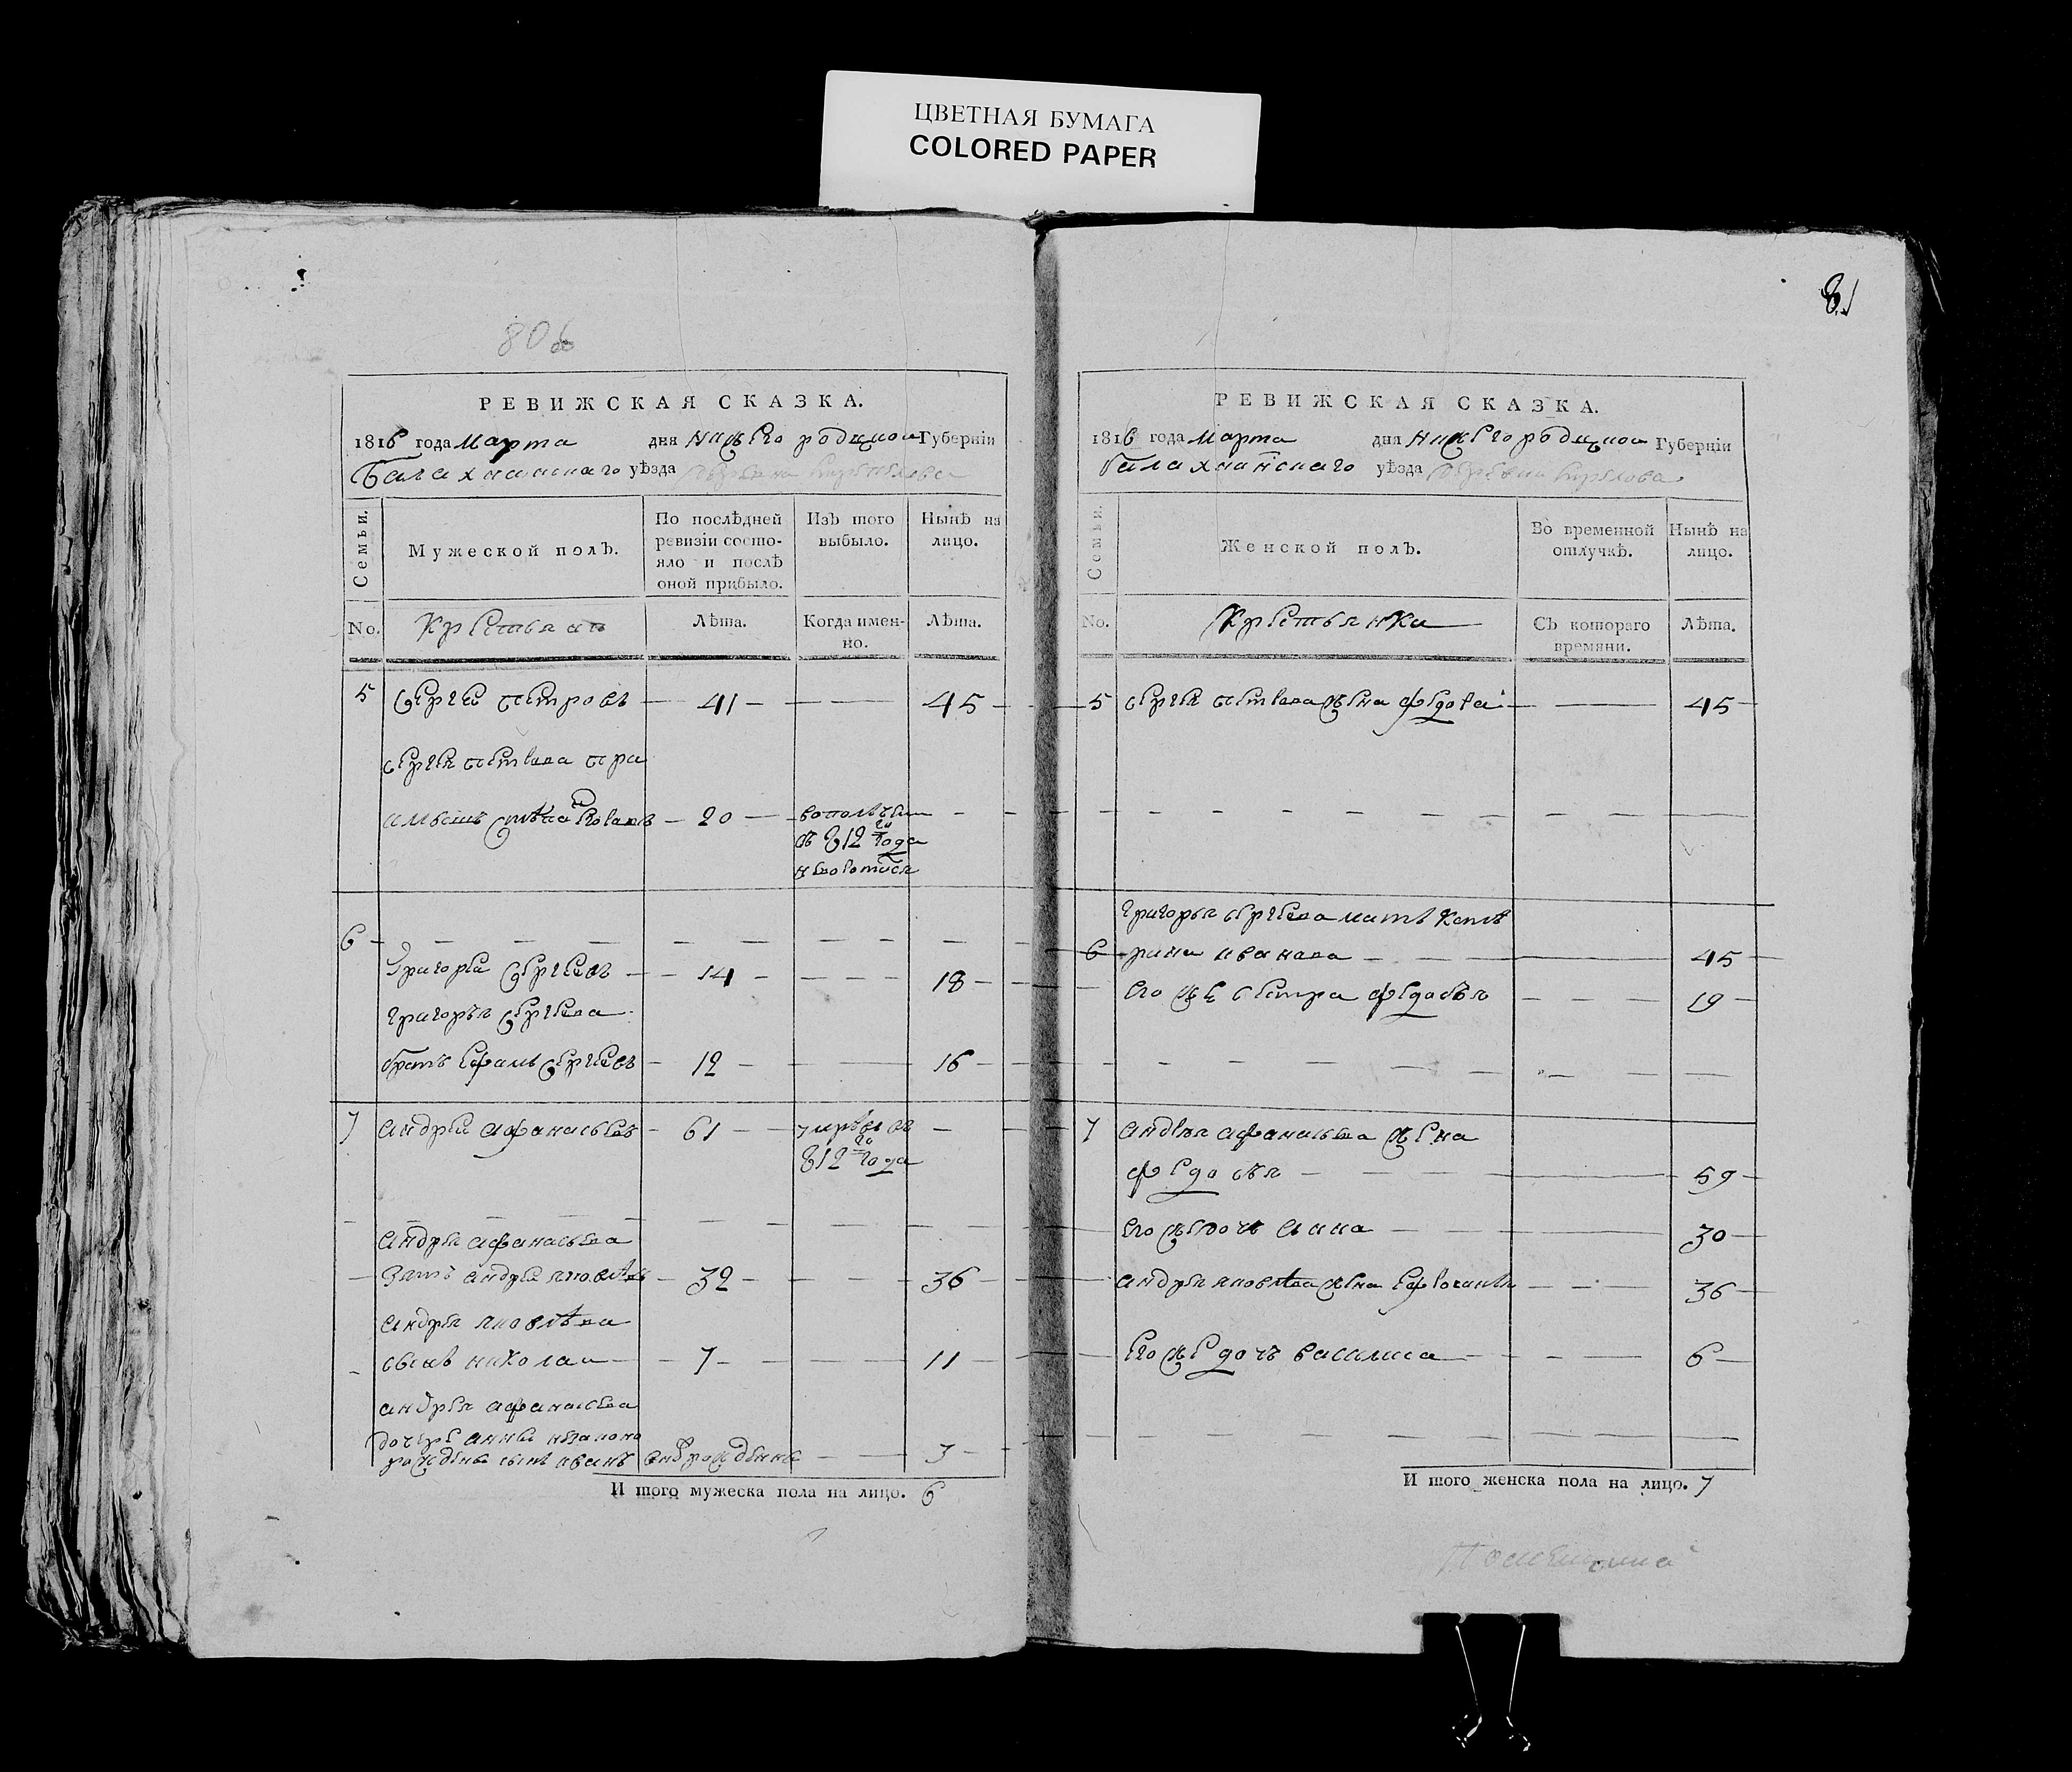 ЦВЕТНАЯ БУМАГА
COLORED PAPER
80об
РЕВИЖСКАЯ СКАЗКА.
1816 года марта дня Нижегородцкои Губернiи
Балахнинскаго уѣзда
Семьи.
Мужеской полъ.
По послѣдней ревизiи состояло и послѣ оной прибыло.
Изъ того выбыло.
Нынѣ на лицо.
No.
Крестьянъ
Лѣта.
Когда именно.
Лѣта.
5 Сергеи Петровъ — 41 — 45
Сергея Петрова при
20 —
812го года
6
Григореи Сергеевъ — 14 — 18
Григорья Сергеева
братъ Ефимъ Сергеевъ — 12 — 16
7 Андреи Афанасьевъ — 61 — умре въ
812го года
Андрея Афанасьева
Зять Андреи Яковлевъ — 32 — 36
Андрея Яковлева
сынъ Николаи — 7 — 11
Андрея Афанасьева
дочере Анны незаконо
рожденъ сынъ Иванъ вновь рожденны — 3
И того мужеска пола на лицо. 6
81
РЕВИЖСКАЯ СКАЗКА.
1816 года марта дня Нижегородцкои Губернiи
Балахнинскаго уѣзда
Семьи.
Женской полъ.
Во временной отлучкѣ.
Нынѣ на лицо.
No.
Крестьянки
Съ котораго времяни.
Лѣта.
5 Сергея Петрова жена — 45
Григорья Сергеева мать Кате
6 рина Иванава — 45
его же сестра Федосья — 19
7 Андрея Афанасьева жена
Федосья — 59
его же дочь Анна — 30
Андрея Яковлева жена — 36
его же дочь Василиса — 6
И того женска пола на лицо. 7